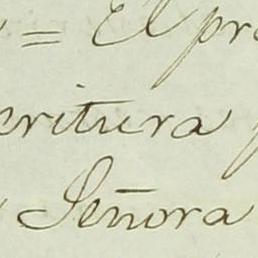 = El pr
critura
Señora